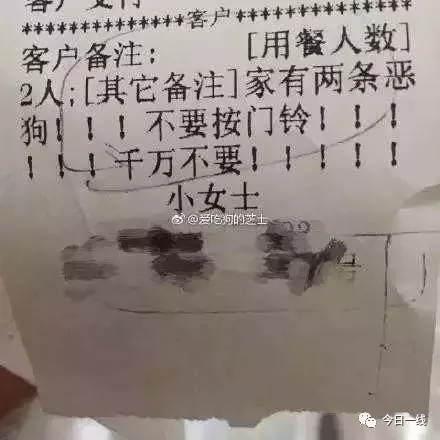 *************客户*************
客户备注： [用餐人数]
2人;[其它备注]家有两条恶
狗！！！ 不要按门铃！！！
！！！千万不要！！！！！
小女士
@爱吃狗的芝士
今日一线